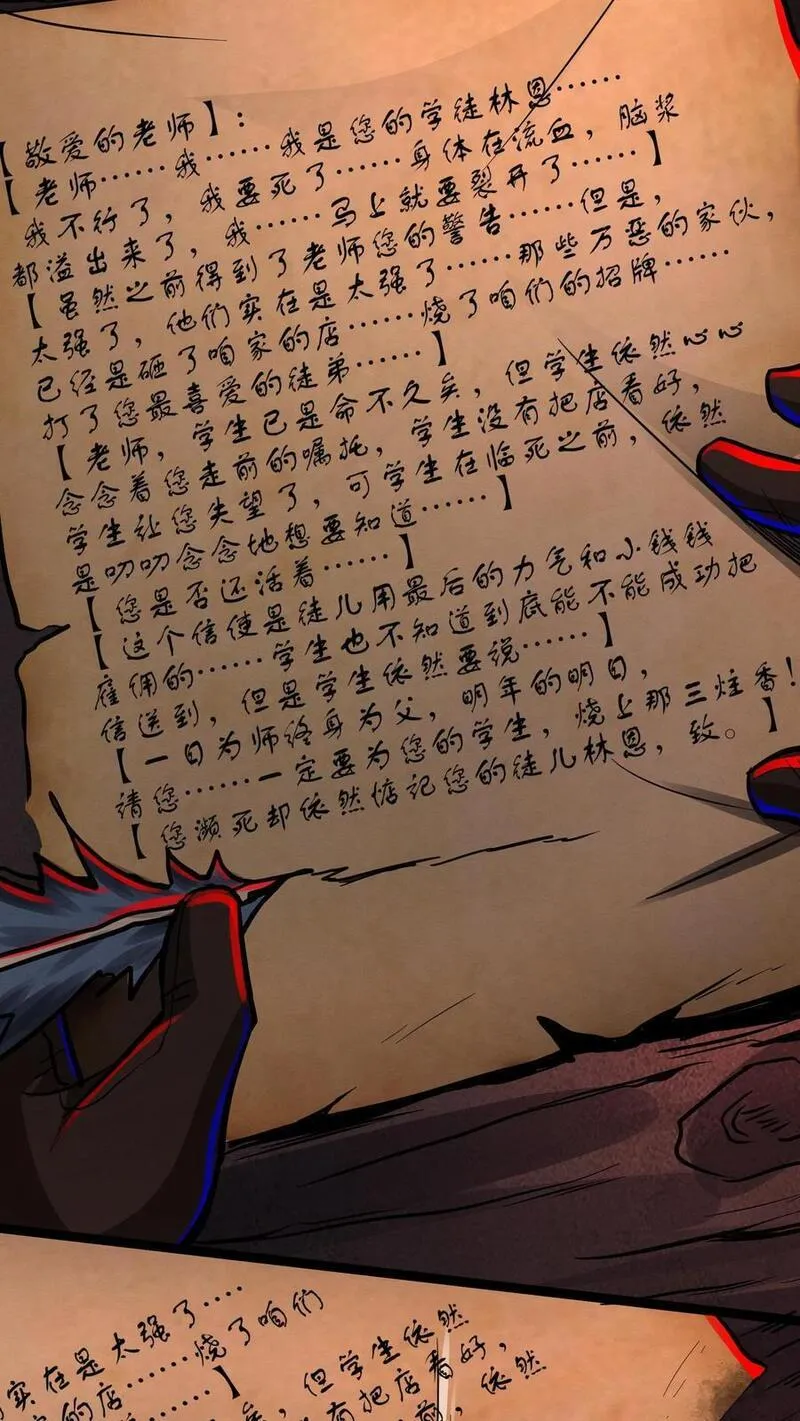 【敬爱的老师】：
【老师……我……我是您的学徒林恩……
我不行了，我要死了……身体在流血，脑浆
都溢出来了，我……马上就要裂开了……】
【虽然之前得到了老师您的警告……但是，
太强了，他们实在是太强了……那些万恶的家伙，
已经是砸了咱家的店……烧了咱们的招牌……
打了您最喜爱的徒弟……】
【老师，学生已是命不久矣，但学生依然心心
念念着您走前的嘱托，学生没有把店看好，
学生让您失望了，可学生在临死之前，依然
是叨叨念念地想要知道……】
【您是否还活着……】
【这个信使是徒儿用最后的力气和小钱钱
雇佣的……学生也不知道到底能不能成功把
信送到，但是学生依然要说……】
【一日为师终身为父，明年的明日，
请您……一定要为您的学生，烧上那三炷香！】
【您濒死却依然惦记您的徒儿林恩，致。】
实在是太强了····
的店……烧了咱们
……】
矣，但学生依然
有把店看好，
前，依然